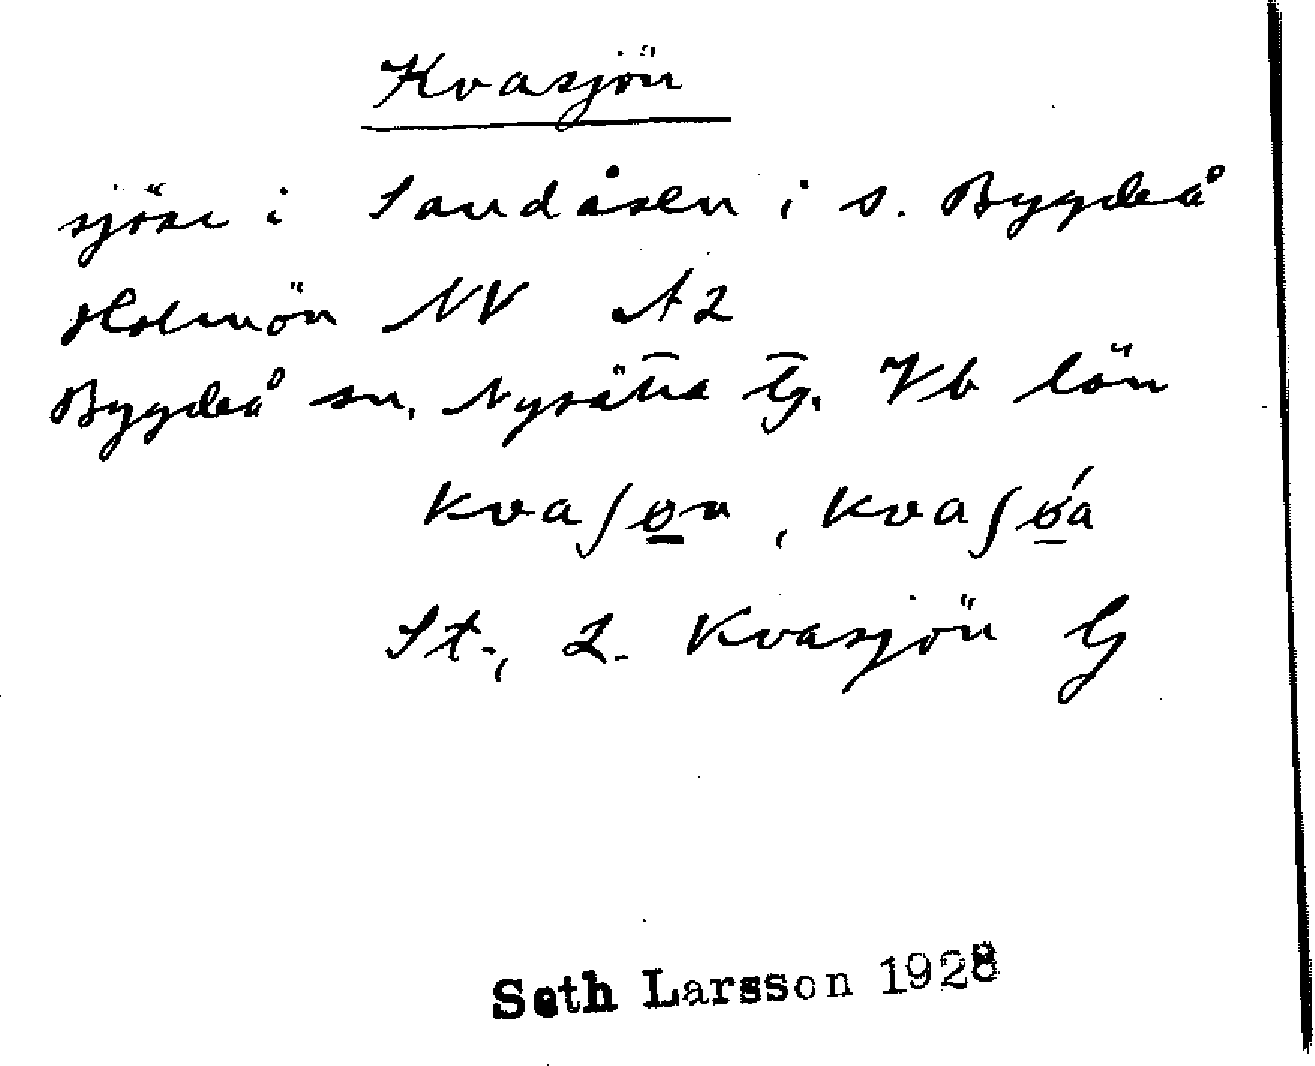 Kvasjön
sjöar i Sandåsen i s. Bygdeå
Holmön NV A2
Bygdeå sn, Nysätra tg. Vb län
Kvaʃøn, Kvaʃǿa
St., L. Kvasjön G
Seth Larsson 1928